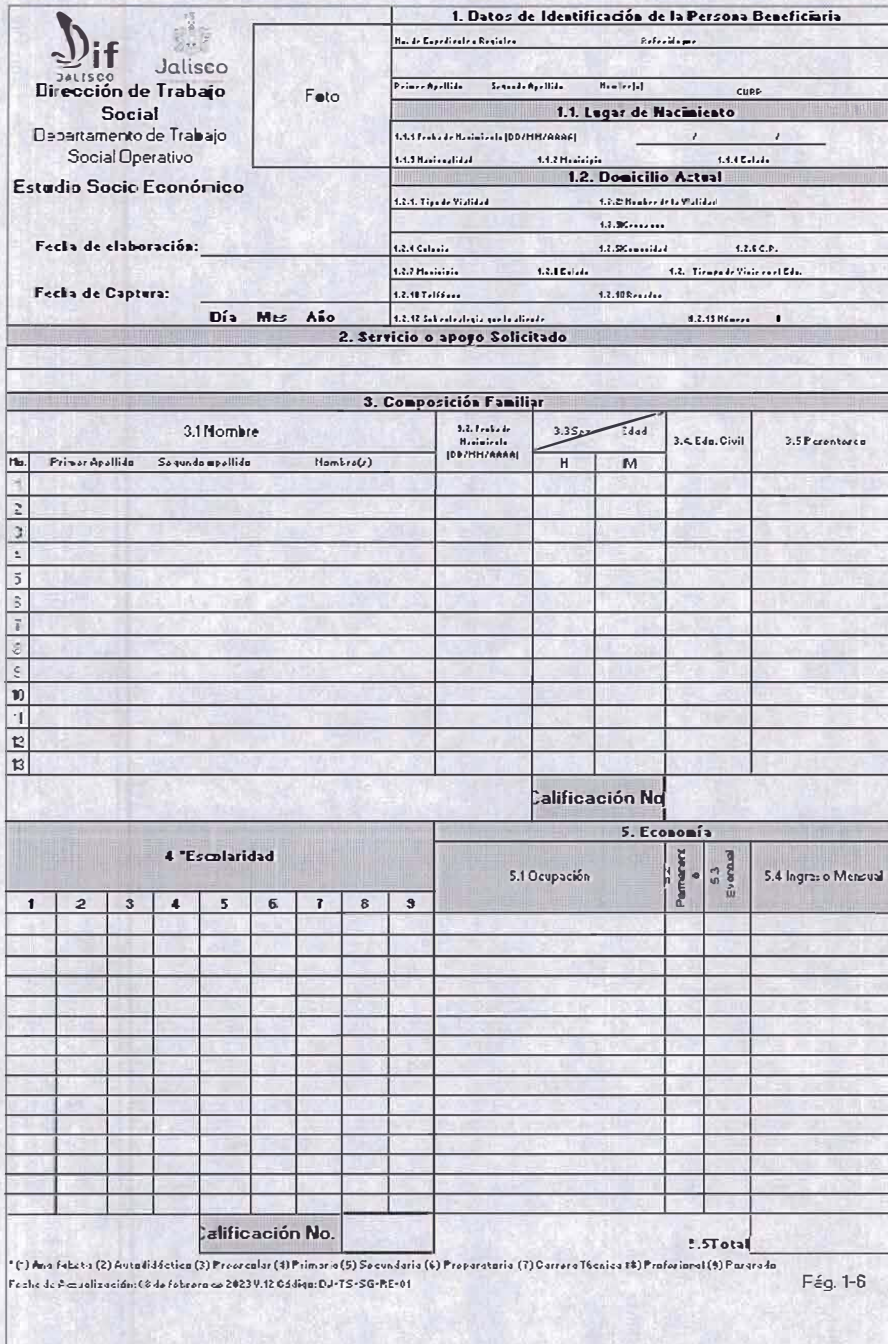 Dif
JALISCO
Jalisco
Dirección de Trabajo
Social
Departamento de Trabajo
Social Operativo
Estudio Socio Económico
Fecha de elaboración:
Fecha de Captura:
Día Mes Año
Foto
1. Datos de Identificación de la Persona Beneficiaria
No. de Expediente o Registro Referido por
Primer Apellido Segundo Apellido Nombre(s) CURP
1.1. Lugar de Nacimiento
1.1.1 Fecha de Nacimiento (DD/MM/AAAA) / /
1.1.3 Nacionalidad 1.1.2 Municipio 1.1.4 Estado
1.2. Domicilio Actual
1.2.1. Tipo de Vialidad 1.2.2 Nombre de la Vialidad
1.2.4 Colonia 1.2.5 Comunidad 1.2.6 C.P.
1.2.7 Municipio 1.2.8 Estado 1.2. Tiempo de Vivir en el Edo.
1.2.10 Teléfono 1.2.10 Recados
1.2.13 Número
2. Servicio o apoyo Solicitado
3. Composición Familiar
3.1 Nombre
3.2. Fecha de Nacimiento (DD/MM/AAAA)
3.3 Sexo Edad
3.4. Edo. Civil
3.5 Parentesco
No. Primer Apellido Segundo apellido Nombre(s) H M
1
2
3
4
5
6
7
8
9
10
11
12
13
Calificación No
4 *Escolaridad
1 2 3 4 5 6 7 8 9
5. Economía
5.1 Ocupación
5.2 Permanente
5.3 Eventual
5.4 Ingreso Mensual
Calificación No.
5.5 Total
*(1) Analfabeta (2) Autodidáctica (3) Preescolar (4) Primaria (5) Secundaria (6) Preparatoria (7) Carrera Técnica (8) Profesional (9) Posgrado
Fecha de Actualización: 08 de febrero de 2023 V.12 Código: DJ-TS-SG-RE-01
Pág. 1-6